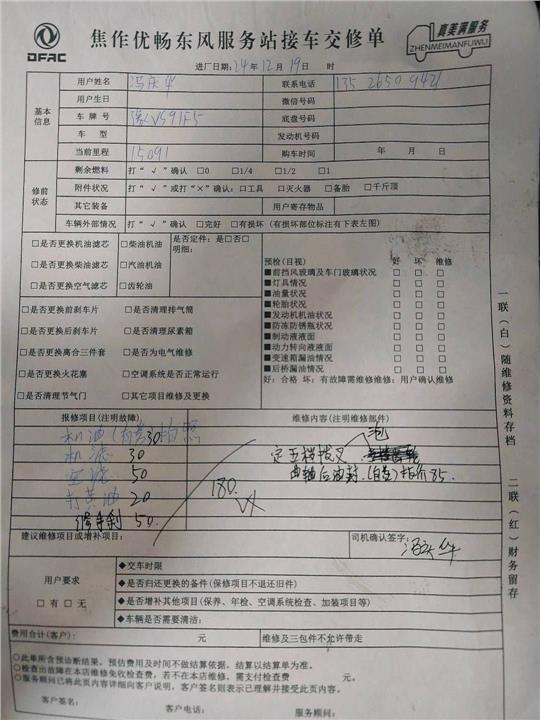 DFAC
焦作优畅东风服务站接车交修单
真美满服务
ZHENMEIMANFUWU
进厂日期:24年12月19日 时
基本信息
用户姓名 冯庆华 联系电话 135 2650 9421
用户生日 微信号码
车牌号 豫 底盘号码
车型 发动机号码
当前里程 15091 购车时间 年 月 日
修前状态
剩余燃料 打“√”确认 □0 □1/4 □1/2 □1
附件状况 打“√”或打“×”确认:□工具 □灭火器 □备胎 □千斤顶
其它装备 用户寄存物品
车辆外部情况 打“√”确认 □完好 □有损坏(有损原部位标注有下表左图)
□是否更换机油滤芯 □柴油机油 是否定件:是□否□
明细:
□是否更换柴油滤芯 □汽油机油
□是否更换空气滤芯 □齿轮油
□是否更换前刹车片 □是否清理排气筒
□是否更换后刹车片 □是否清理尿素箱
□是否更换离合三件套 □是否为电气维修
□是否更换火花塞 □空调系统是否正常运行
□是否清理节气门 □其它项目维修及更换
预检(目视) 好 坏 维修
■前挡风玻璃及车门玻璃状况 □ □ □
■灯具情况 □ □ □
■油量状况 □ □ □
■轮胎状况 □ □ □
■发动机机油状况 □ □ □
■防冻防锈瓶状况 □ □ □
■制动液液面 □ □ □
■动力转向液液面 □ □ □
■变速箱漏油情况 □ □ □
■后桥漏油情况 □ □ □
好:合格 坏:有故障需维修维修:用户确认维修
报修项目(注明故障) 维修内容(注明维修部件)
机油(自带)30 拍照
机滤 30
空滤 50
打黄油 20
修手刹 50
180.
定五档拨叉
曲轴后油封.(自带)报价85.
建议维修项目或增补项目: 司机确认签字: 冯庆华
用户要求
□有□无
◆交车时限
◆是否归还更换的备件(保修项目不退还旧件)
◆是否增补其他项目(保养、年检、空调系统检查、加装项目等)
◆车辆是否需要清洁:
费用合计(客户): 元 维修及三包件不允许带走
○此单所含预诊断结果,预估费用及时间不做结算依据,结算以结算单为准。
○检查出故障在本店维修免收检查费,若不在本店维修,需支付检查费 元。
○服务顾问已将此页内容详细向客户说明,客户签名则表示已理解并接受此页内容。
客户签名: 客户电话: 服务顾问:
一联(白)随维修资料存档
二联(红)财务留存